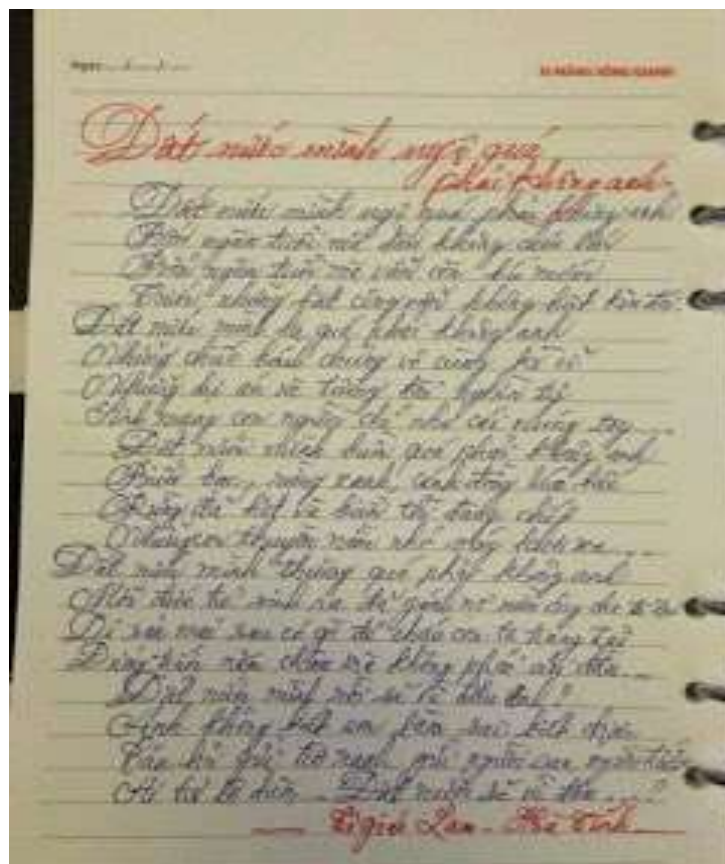 Ngày
Đất nước mình ngộ quá
phải không anh
Đất nước mình ngộ quá phải không anh
Bốn ngàn tuổi mà dân không chịu lớn
Bốn ngàn tuổi mà vẫn còn bú mớm
Trước những bất công vẫn không biết kêu đòi
Đất nước mình lạ quá phải không anh
Những chiếc bánh chưng vô cùng kì vĩ
Những dự án và tượng đài nghìn tỷ
Sinh mạng con người chỉ như cái móng tay...
Đất nước mình buồn quá phải không anh
Biển bạc, rừng xanh, cánh đồng lúa biếc
Rừng đã hết và biển thì đang chết
Những con thuyền nằm nhớ sóng khơi xa...
Đất nước mình thương quá phải không anh
Mỗi đứa trẻ sinh ra đã gánh nợ nần ông cha để lại
Di sản mai sau có gì để cháu con ta trang trải
Đứng trước năm châu mà không phải cúi đầu...
Đất nước mình rồi sẽ về đâu anh?
Anh không biết em làm sao biết được
Câu hỏi gửi trời xanh, gửi người sau, người trước
Ai trả lời dùm... Đất nước sẽ về đâu...?